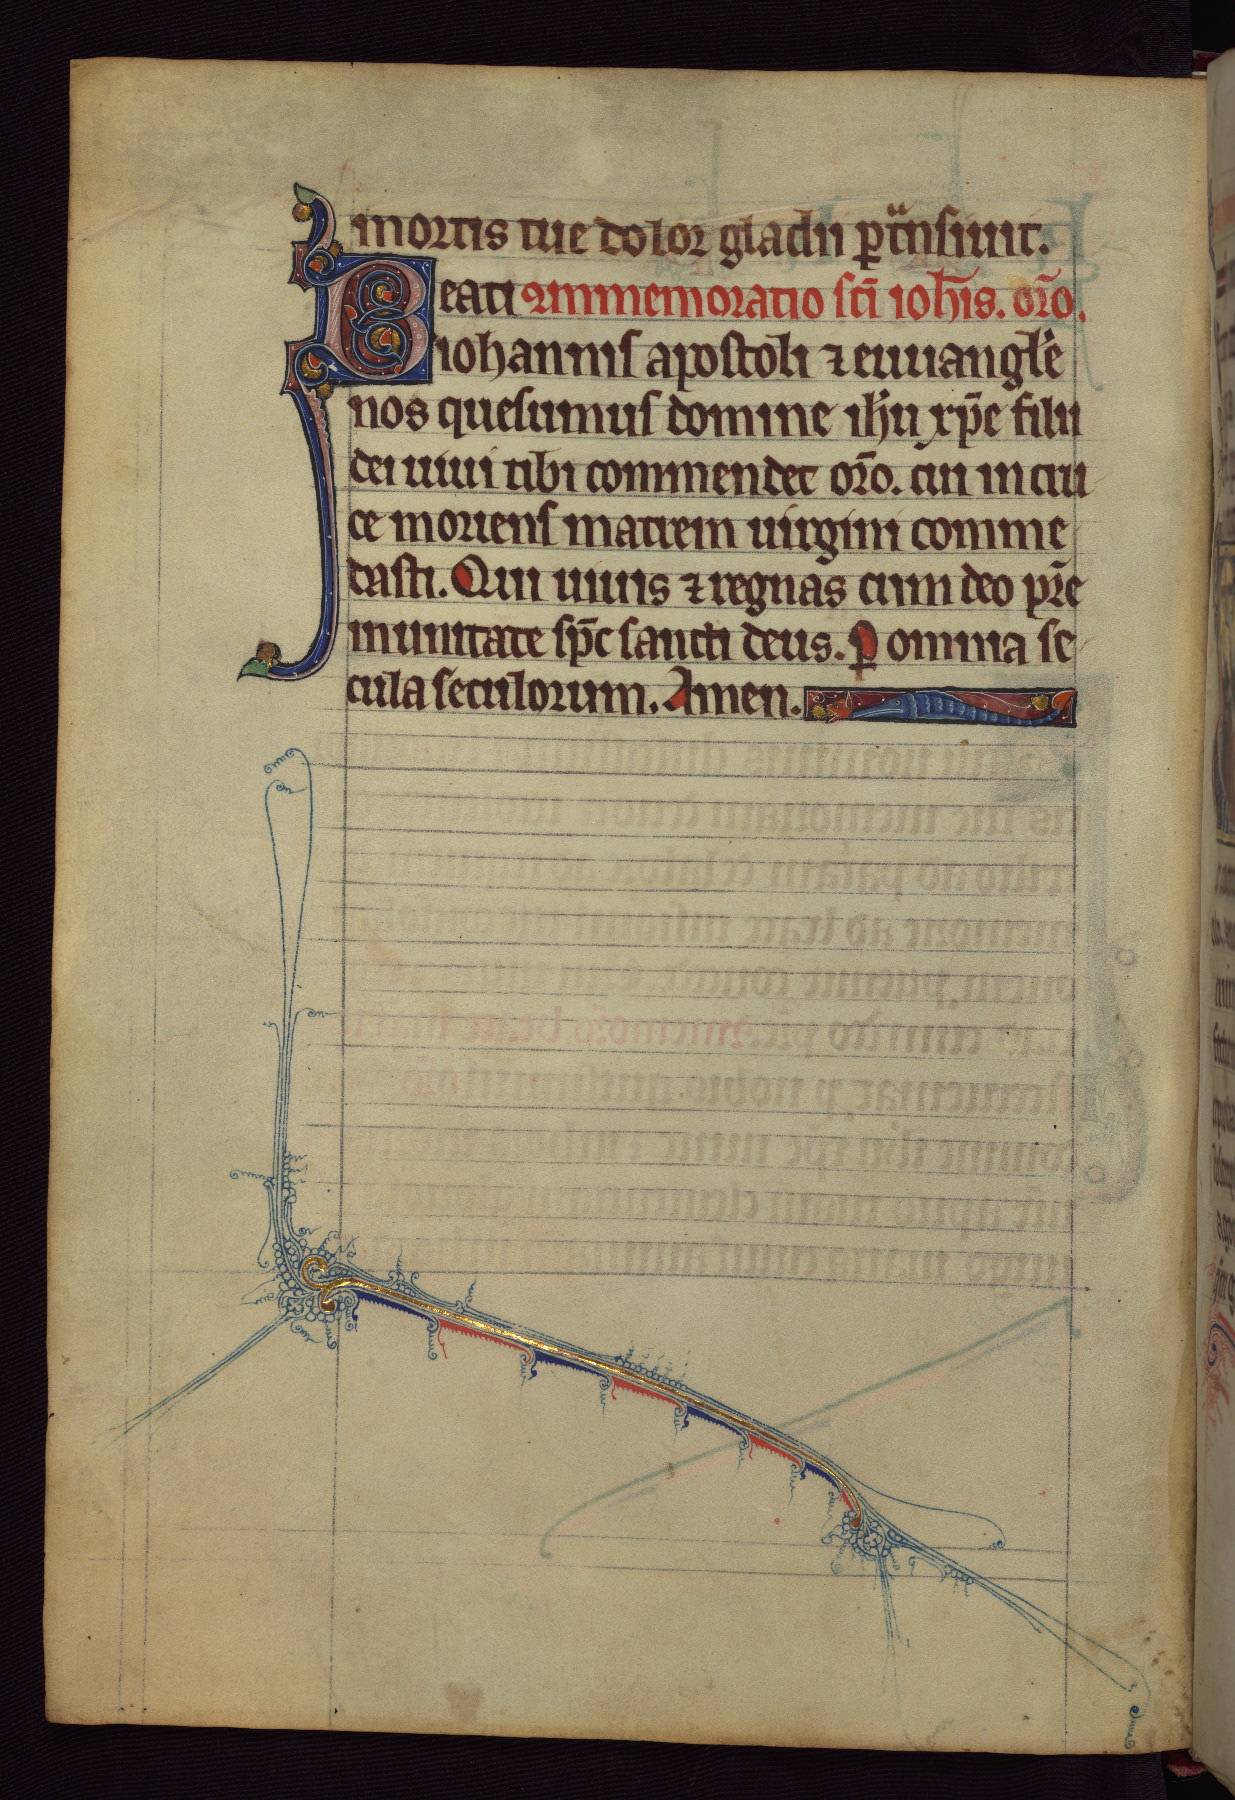 mortis tue dolor gladii ꝑtͣnsiuit.
Beati 9mmemoratio sc̄i ioh̄is. or̄o.
iohannis apostoli ⁊ euuangl'e
nos quesumus domine ih'u xp̄e filii
dei uiui tibi commendet or̄o. cui in cru
ce moriens matrem uirgini comme
dasti. Qui uiuis ⁊ regnas cum deo pr̄e
in unitate sp̄c sancti deus. Ꝑ omnia se
cula seculorum. Amen.